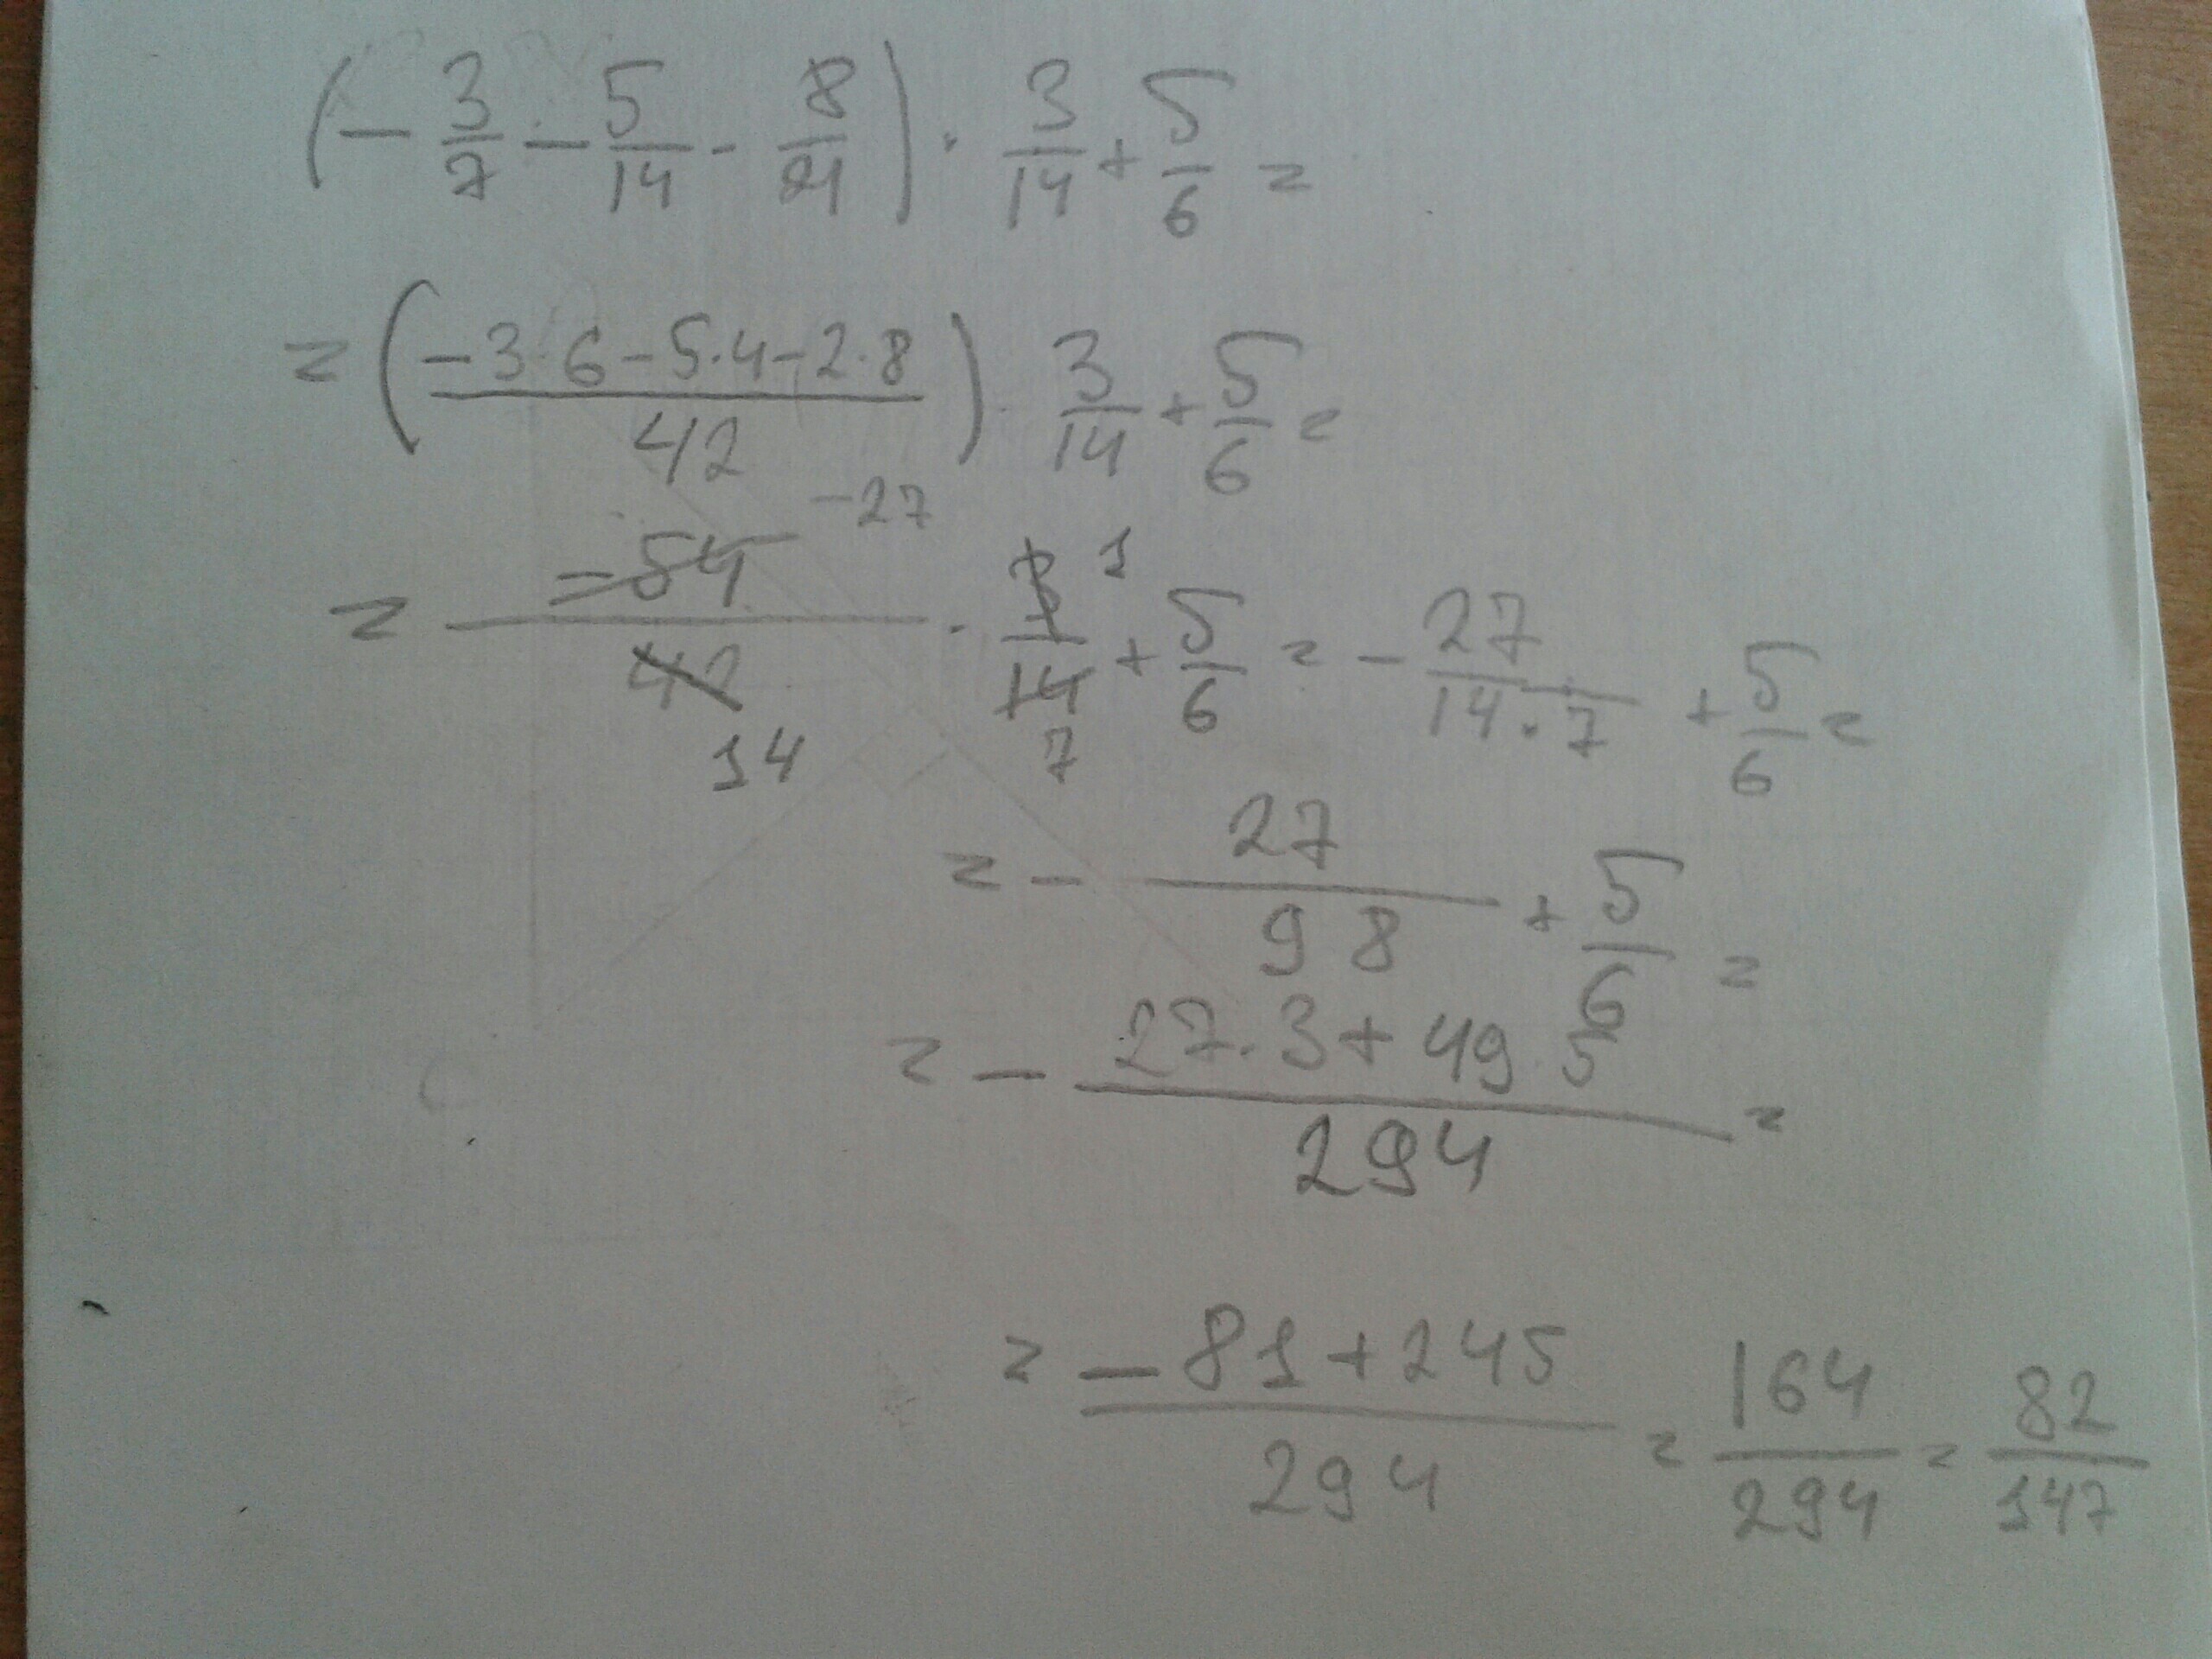 (- 3/7 - 5/14 - 8/21) · 3/14 + 5/6 =
= (-3·6-5·4-2·8 / 42) · 3/14 + 5/6 =
= -54 -27 / 42 14 · 3 1 / 14 7 + 5/6 = - 27/14·7 + 5/6 =
= - 27/98 + 5/6 =
= - 27·3+49·5 / 294 =
= -81+245 / 294 = 164/294 = 82/147